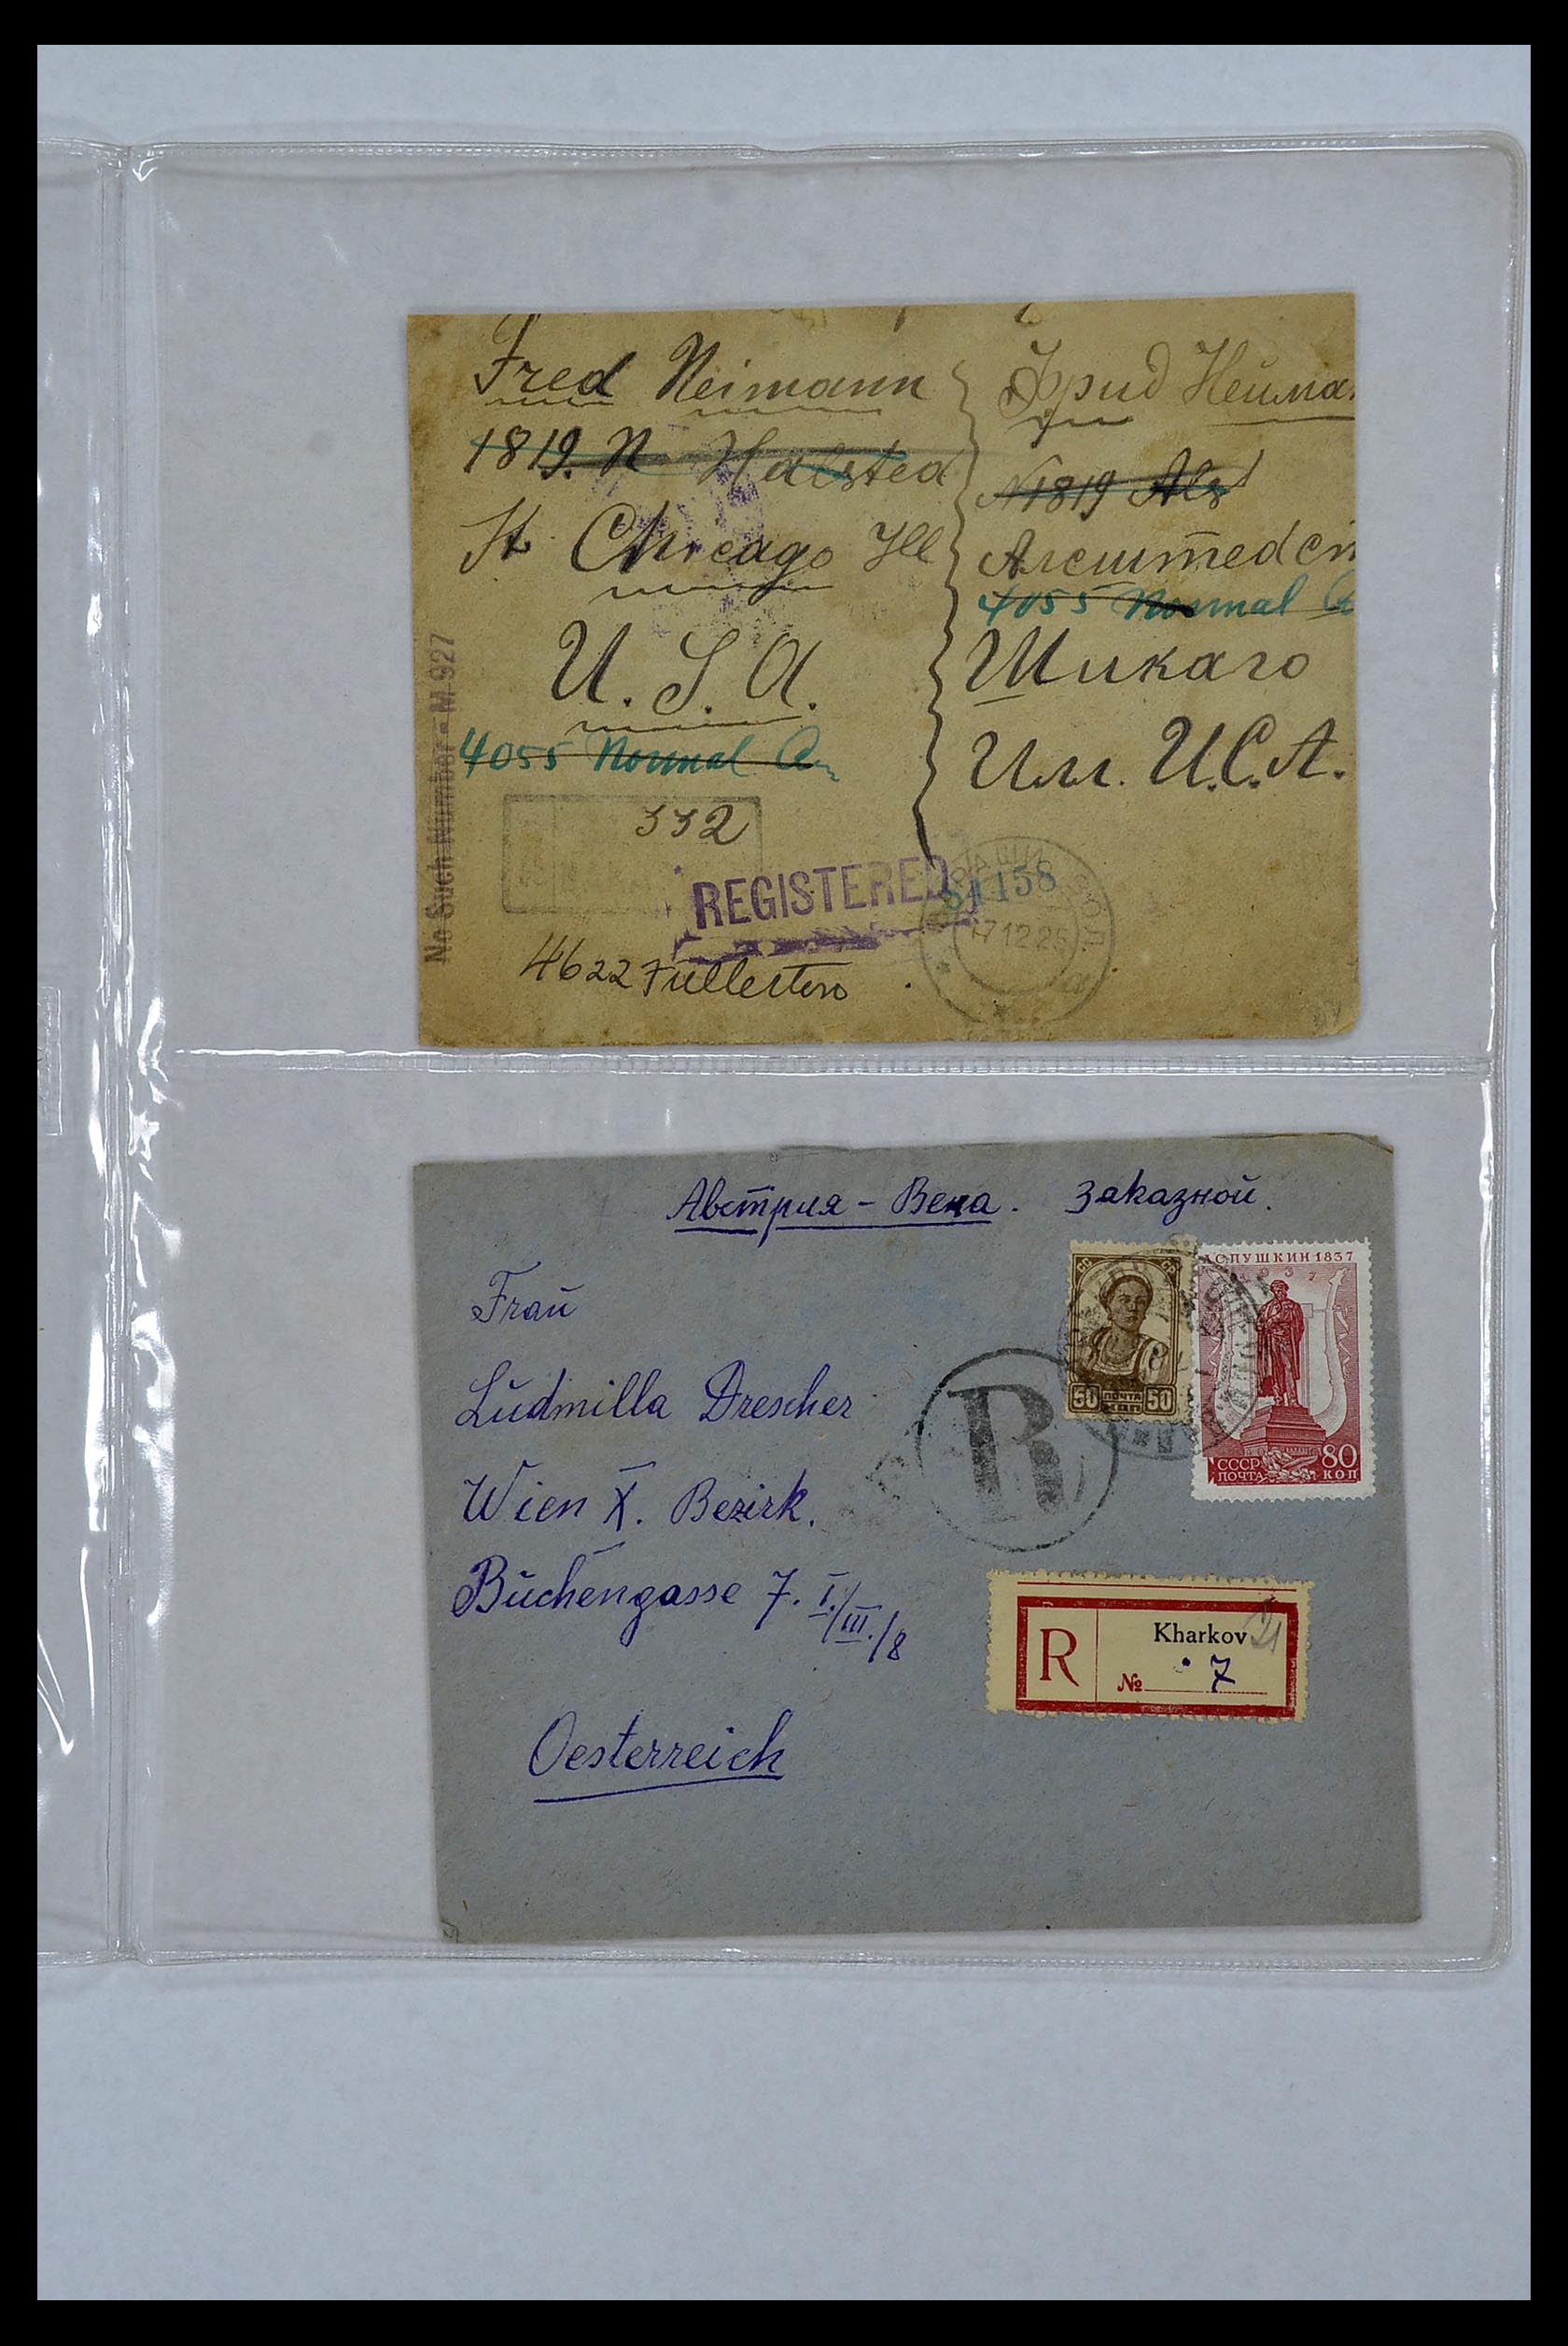 Fred Neimann
1819. N Halsted
St Chicago Ill
U. S. A.
4055 Normal
332
REGISTERED
4622 Fullerton
No Such Number - M-927
Фрид Нейма
№1819
4055 Normal
Шикаго
Илл. И.С.А.
84158
17 12 25
Австрия - Вена. Заказной.
Frau
Ludmilla Drescher
Wien X. Bezirk.
Buchengasse 7. I./III./8
Oesterreich
СС СР
50 ПОЧТА 50
КОП
А·С·ПУШКИН 1837
1937
СССР 80
ПОЧТА КОП
R
R Kharkov 21
№ 7